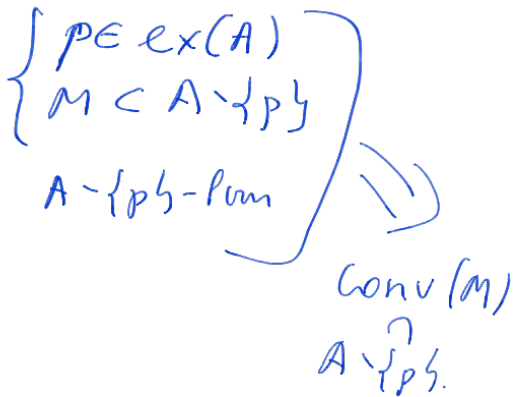 p ∈ ex(A)
M ⊂ A \ {p}
A \ {p} -
⇒
Conv(M)
∩
A \ {p}.